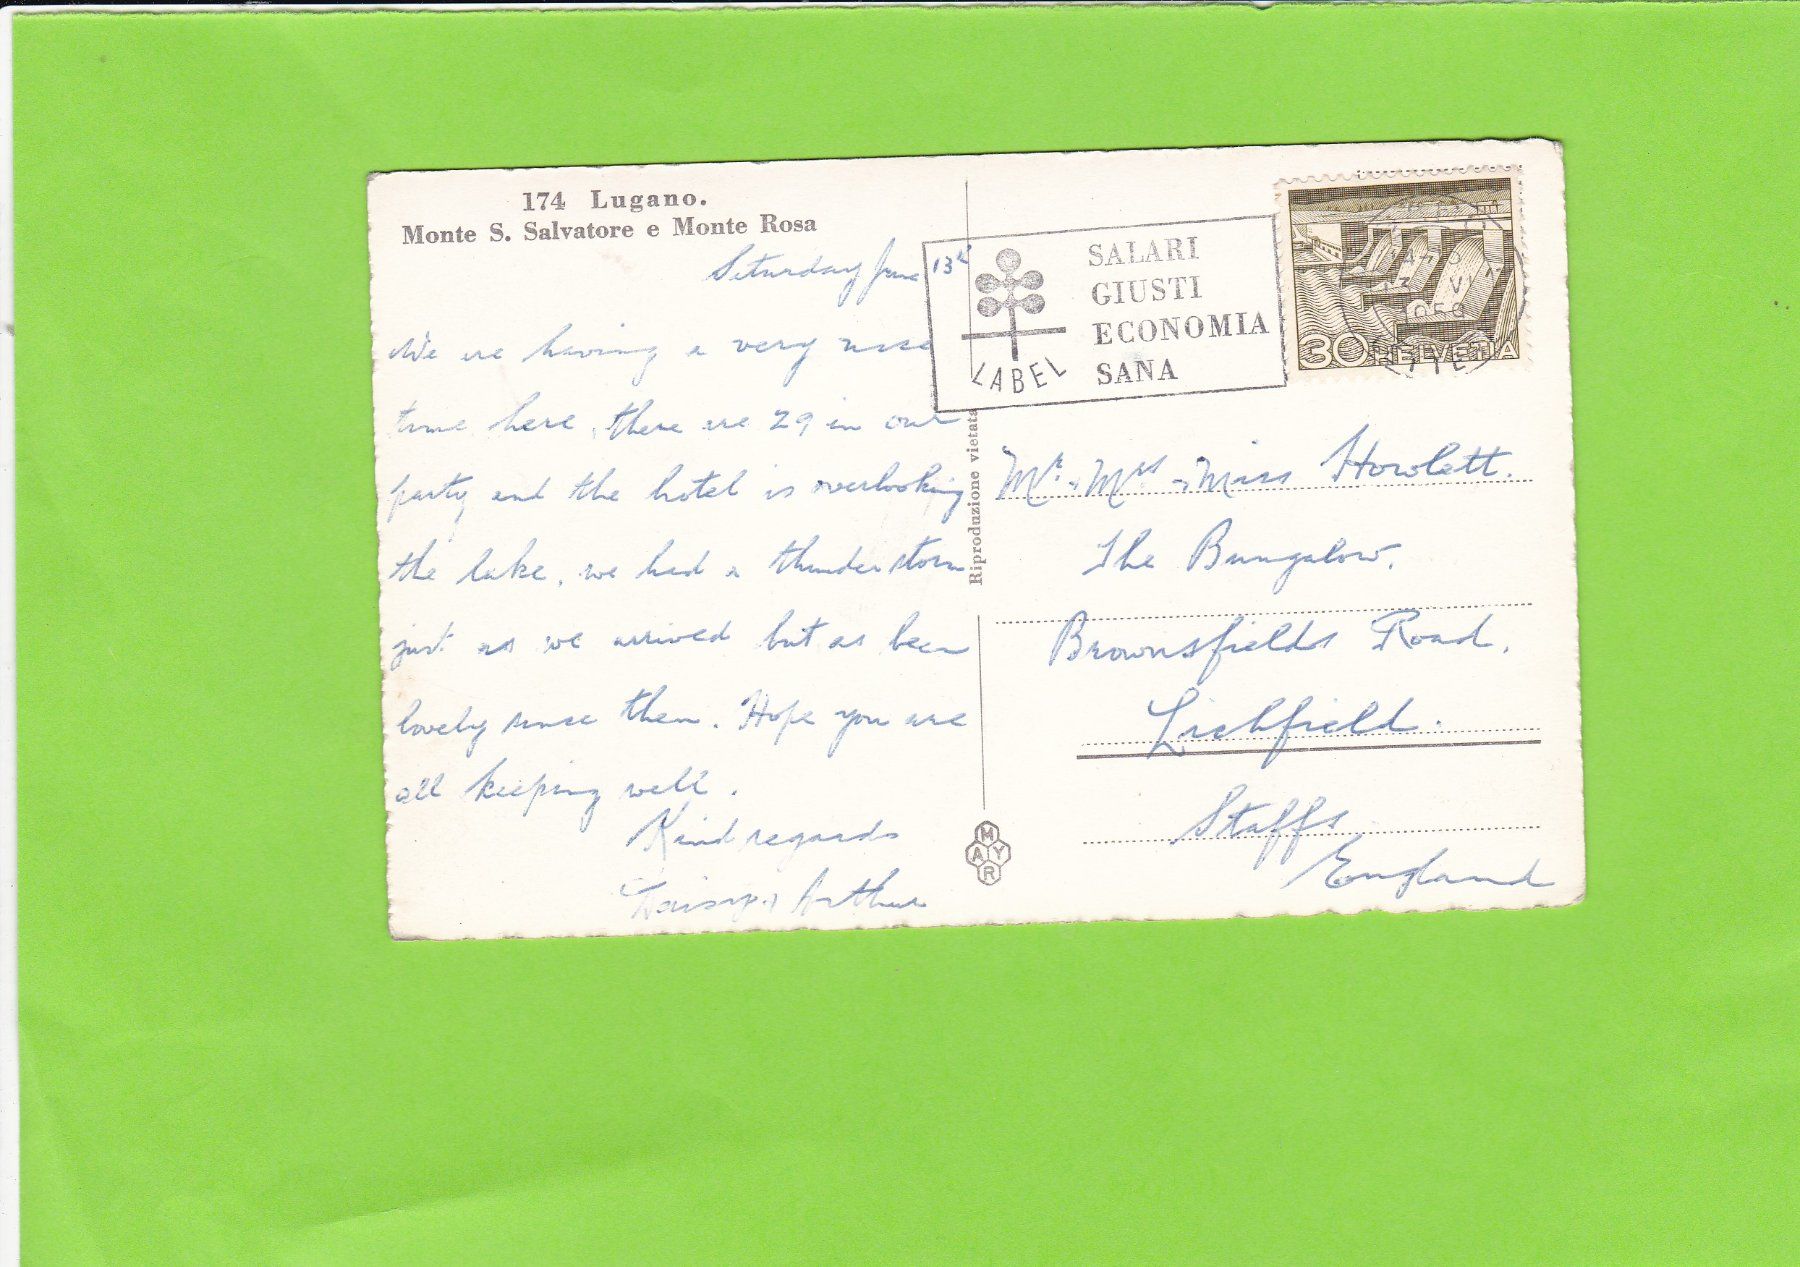 174 Lugano.
Monte S. Salvatore e Monte Rosa
Saturday June 13th
We are having a very nice
time here, there are 29 in our
party and the hotel is overlooking
the lake, we had a thunder storm
just as we arrived but as been
lovely since then. Hope you are
all keeping well.
Kind regards
Daisy & Arthur
Riproduzione vietata
MAYR
LABEL
SALARI
GIUSTI
ECONOMIA
SANA
30 HELVETIA
Mr. & Mrs & Miss Howlett.
The Bungalow.
Brownsfields Road.
Lichfield.
Staffs
England